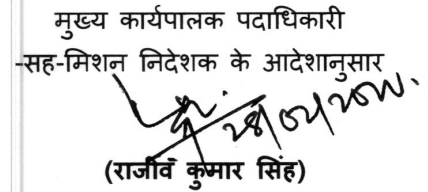 मुख्य कार्यपालक पदाधिकारी
-सह-मिशन निदेशक के आदेशानुसार
(राजीव कुमार सिंह)